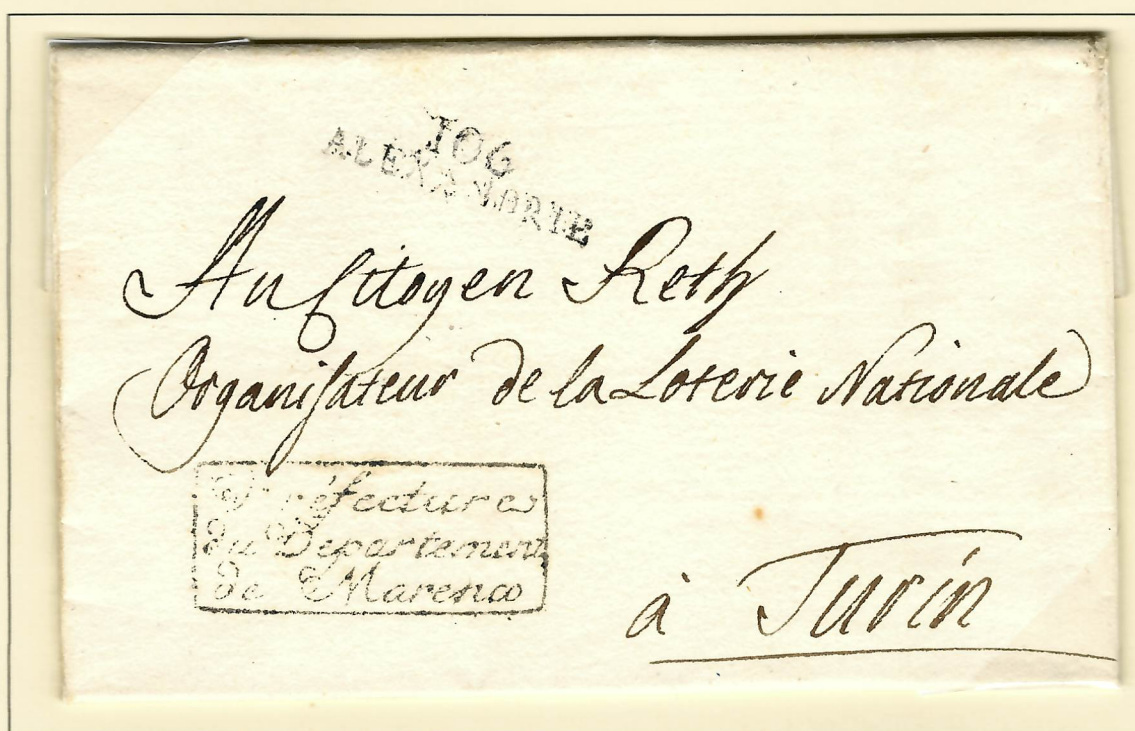 106
ALEXANDRIE
Au Citoyen Reth
Organisateur de la Loterie Nationale
Préfecture
du Département
de Marengo
à Turin